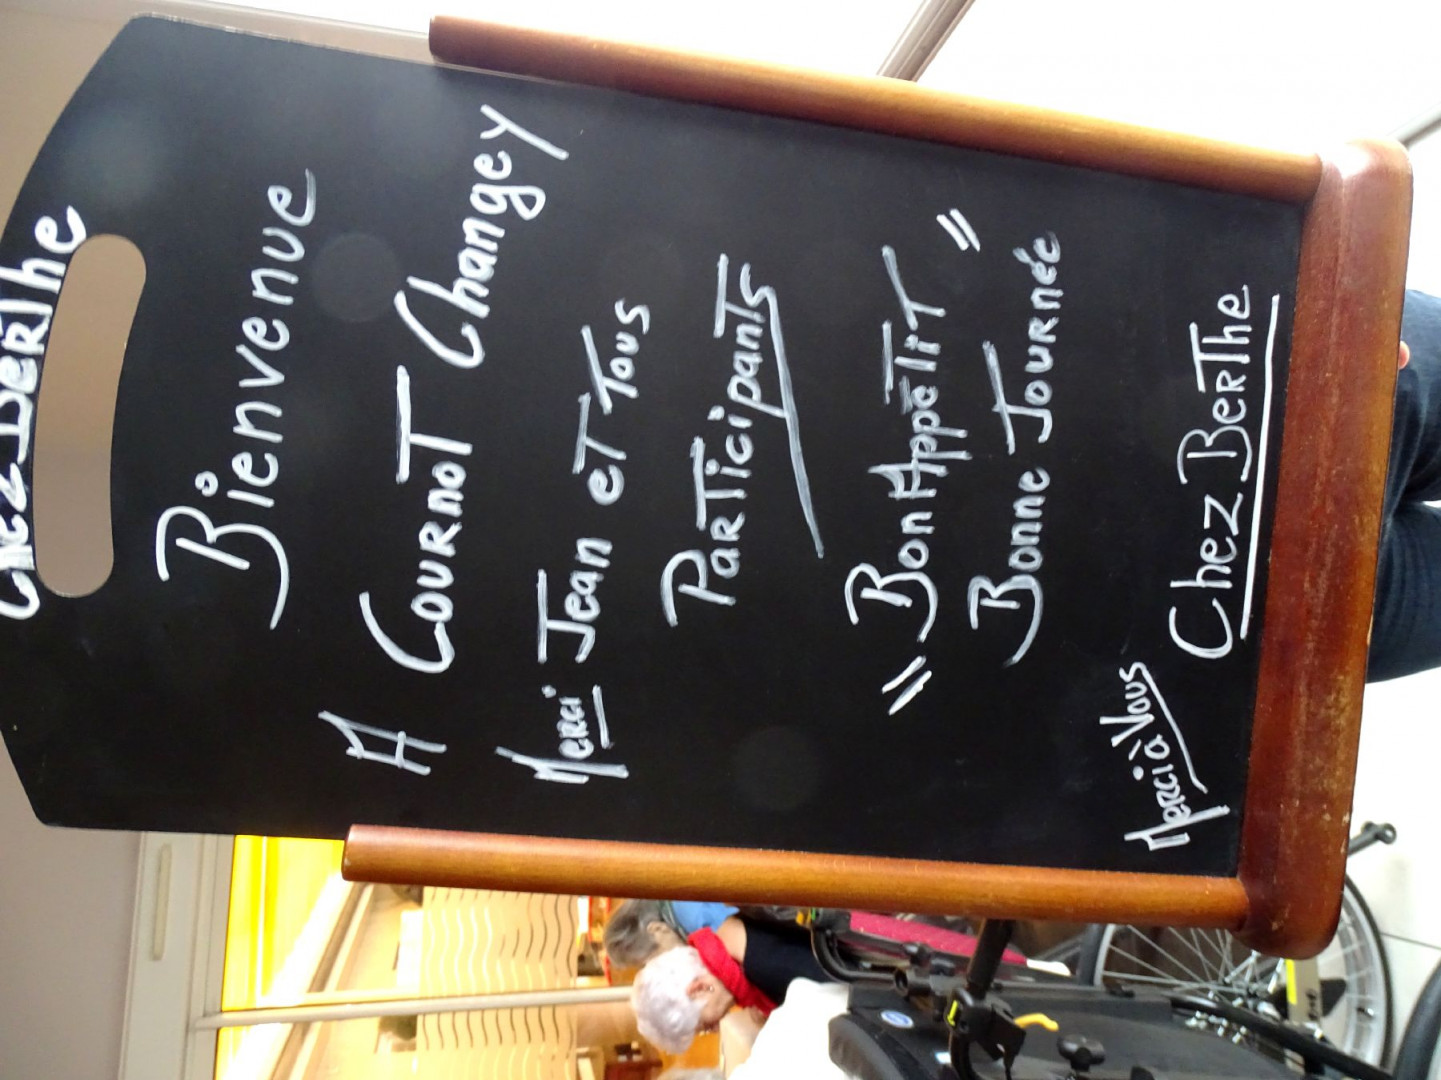 Chez Berthe
Bienvenue
A Cournot Changey
Merci Jean et Tous
Participants
" Bon Appétit "
Bonne Journée
Merci à Vous
Chez Berthe